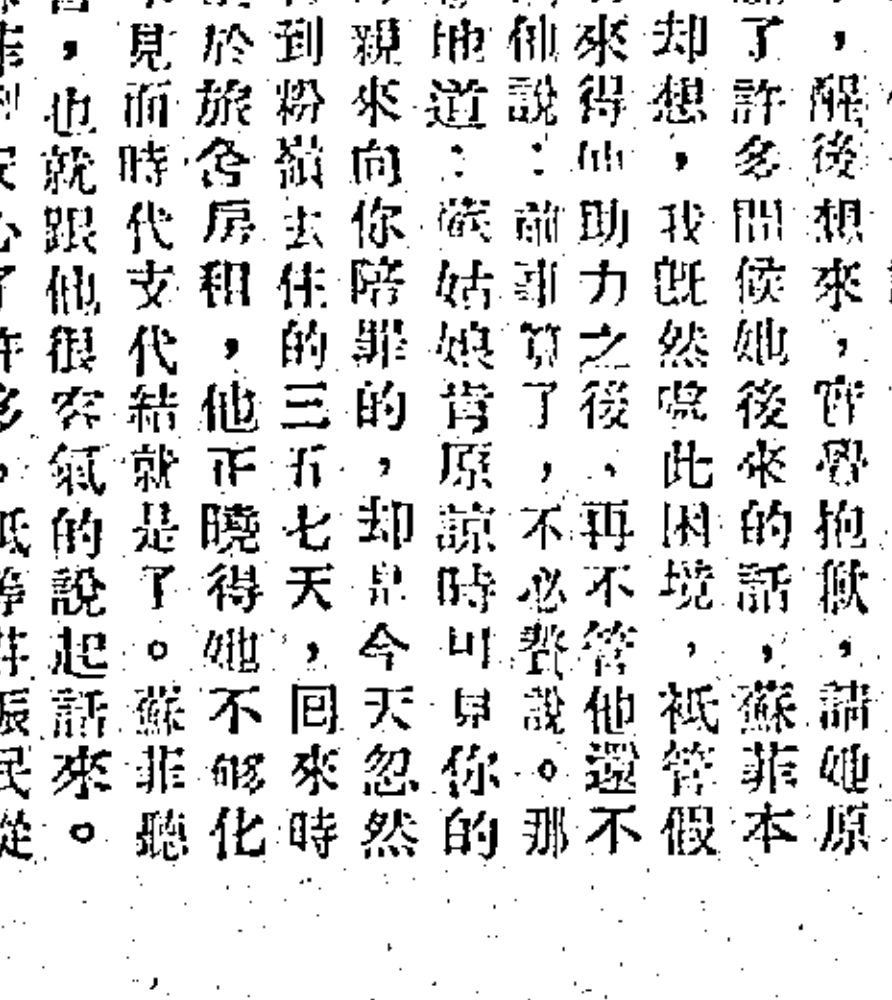 ，醒後想來，實覺抱歉，請她原
了許多問候她後來的話，蘇菲本
却想，我既然處此困境，祗管假
來得他助力之後、再不管他還不
他說：前事算了，不必贅說。那
地道：蘇姑娘肯原諒時可見你的
親來向你陪罪的，却是今天忽然
到粉嶺去住的三五七天，回來時
於旅舍房租，他正曉得她不够化
見面時代支代結就是了。蘇菲聽
，也就跟他很客氣的說起話來。